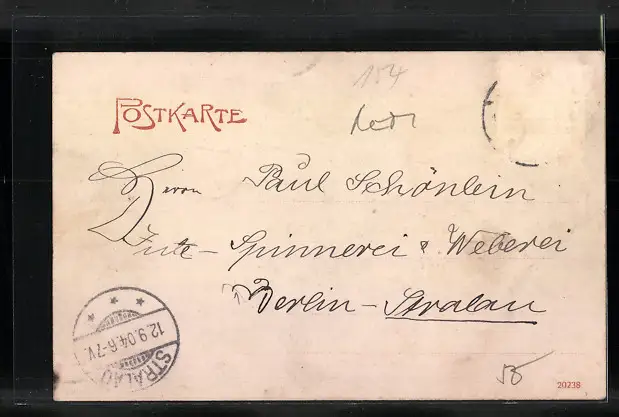 154
POSTKARTE
Herrn Paul Schönlein
Jute-Spinnerei & Weberei
Berlin-Stralau
12.9.04.6-7V.
STRALAU
55
20238